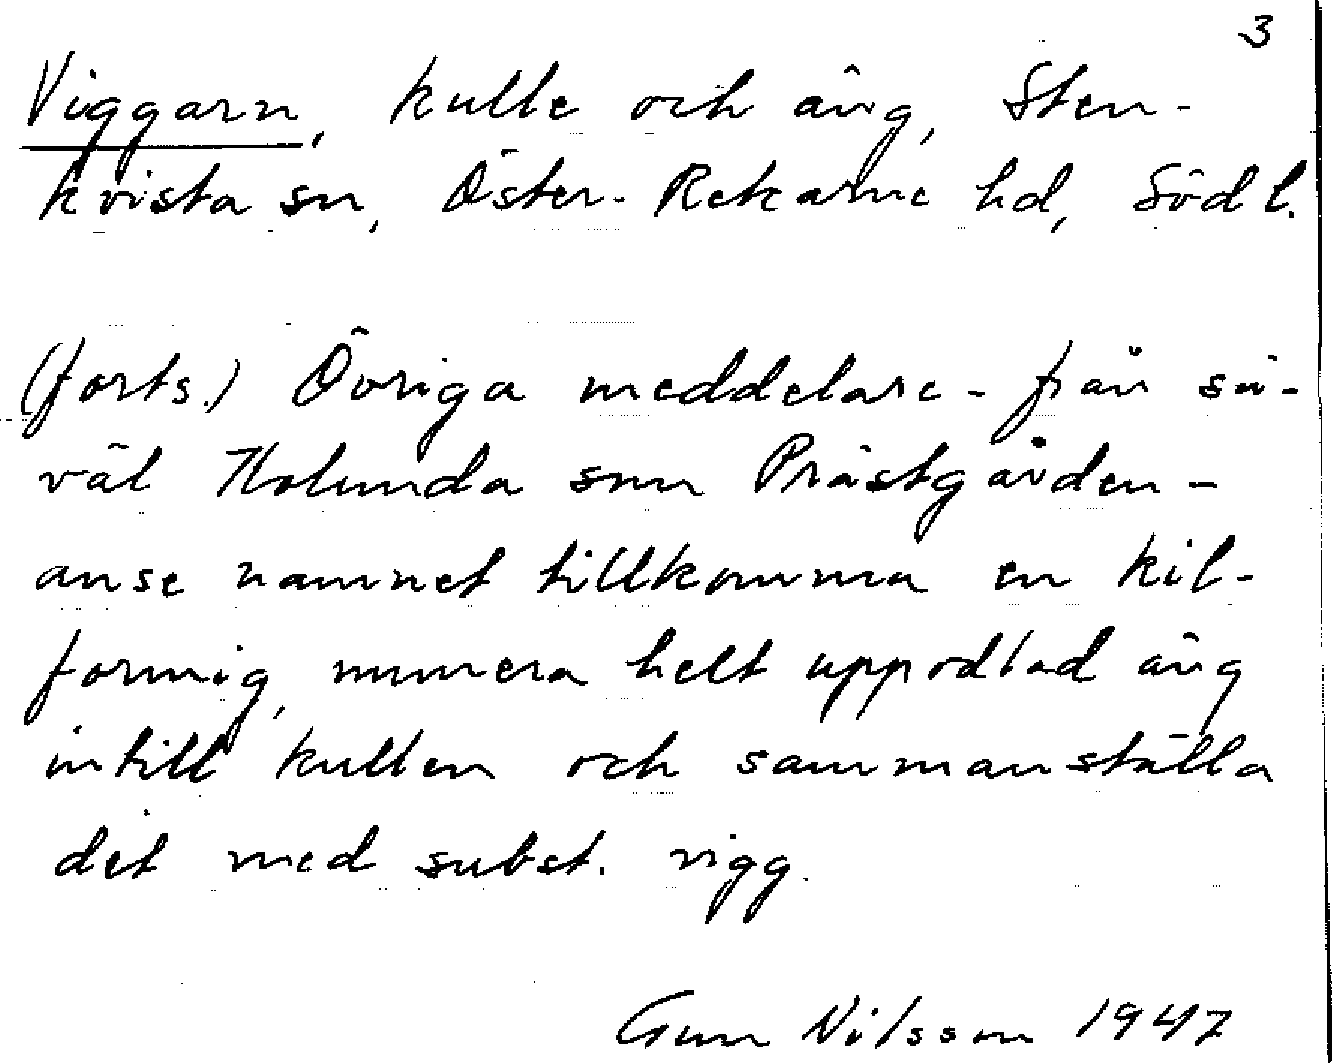 3
Viggarn, kulle och äng, Sten-
kvista sn, Öster-Rekarne hd, Södl.
(forts.) Övriga meddelare - från så-
väl Kolunda som Prästgården -
anse namnet tillkomma en kil-
formig, numera helt uppodlad äng
intill kullen och sammanställa
det med subst. vigg.
Gun Nilsson 1947